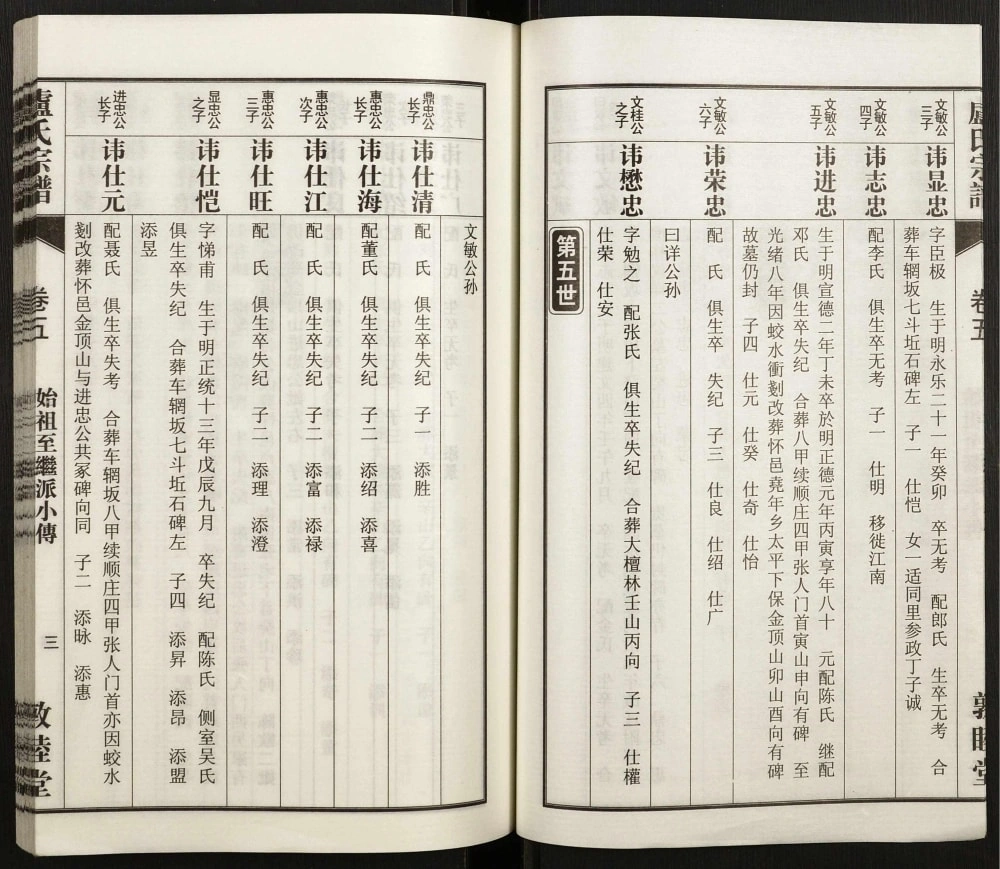 盧氏宗譜
卷五
敦睦堂
文敏公
三子
讳显忠
字臣极 生于明永乐二十一年癸卯 卒无考 配郎氏 生卒无考 合
葬车辋坂七斗坵石碑左 子一 仕恺 女一适同里参政丁子诚
文敏公
四子
讳志忠
配李氏 俱生卒无考 子一 仕明 移徙江南
文敏公
五子
讳进忠
生于明宣德二年丁未卒於明正德元年丙寅享年八十 元配陈氏 继配
邓氏 俱生卒失纪 合葬八甲续顺庄四甲张人门首寅山申向有碑 至
光绪八年因蛟水衝剗改葬怀邑堯年乡太平下保金顶山卯山酉向有碑
故墓仍封 子四 仕元 仕癸 仕奇 仕怡
文敏公
六子
讳荣忠
配 氏 俱生卒 失纪 子三 仕良 仕绍 仕广
曰详公孙
文桂公
之子
讳懋忠
字勉之 配张氏 俱生卒失纪 合葬大檀林壬山丙向 子三 仕權
仕荣 仕安
第五世
文敏公孙
鼎忠公
长子
讳仕清
配 氏 俱生卒失纪 子一 添胜
惠忠公
长子
讳仕海
配董氏 俱生卒失纪 子二 添绍 添喜
惠忠公
次子
讳仕江
配 氏 俱生卒失纪 子二 添富 添禄
惠忠公
三子
讳仕旺
配 氏 俱生卒失纪 子二 添理 添澄
显忠公
之子
讳仕恺
字悌甫 生于明正统十三年戊辰九月 卒失纪 配陈氏 侧室吴氏
俱生卒失纪 合葬车辋坂七斗坵石碑左 子四 添昇 添昂 添盟
添昱
进忠公
长子
讳仕元
配聂氏 俱生卒失考 合葬车辋坂八甲续顺庄四甲张人门首亦因蛟水
剗改葬怀邑金顶山与进忠公共冢碑向同 子二 添昹 添惠
盧氏宗譜
卷五
始祖至繼派小傳
三
敦睦堂